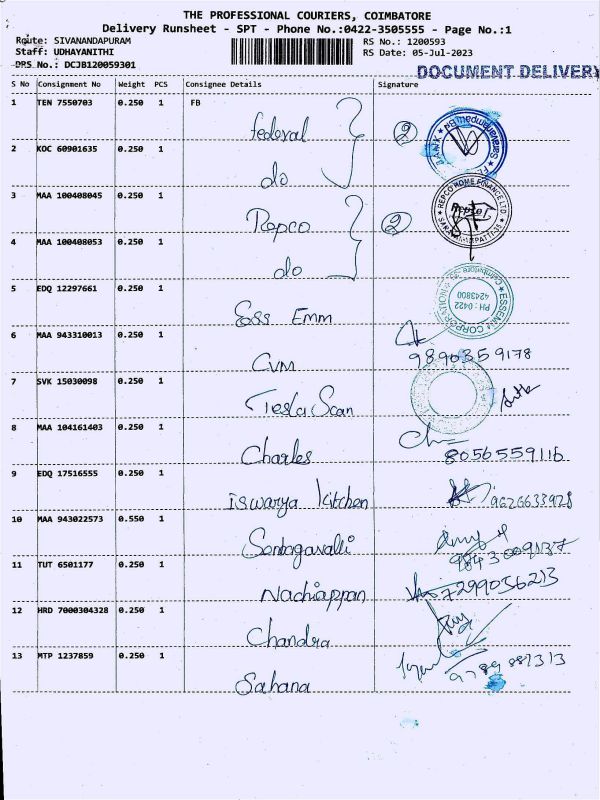 THE PROFESSIONAL COURIERS, COIMBATORE
Delivery Runsheet - SPT - Phone No.:0422-3505555 - Page No.:1
Route: SIVANANDAPURAM RS No.: 1200593
Staff: UDHAYANITHI RS Date: 05-Jul-2023
DRS No.: DCJB120059301
DOCUMENT DELIVERY
S No Consignment No Weight PCS Consignee Details Signature
1 TEN 7550703 0.250 1 FB
Federal 2
2 KOC 60901635 0.250 1
do
BANK
3 MAA 100408045 0.250 1
REPCO HOME FINANCE LTD.
Repco 2
4 MAA 100408053 0.250 1
do
5 EDQ 12297661 0.250 1
ESSEMM CORPORATION
Coimbatore
PH : 0422
4243800
Ess Emm
6 MAA 943310013 0.250 1
CVM 9890359178
7 SVK 15030098 0.250 1
Tesla Scan
8 MAA 104161403 0.250 1
Charles 8056559116
9 EDQ 17516555 0.250 1
iswarya kitchen 9626633928
10 MAA 943022573 0.550 1
9843009137
11 TUT 6501177 0.250 1
Nachiappan 7299056213
12 HRD 7000304328 0.250 1
Chandra
13 MTP 1237859 0.250 1
Sahana